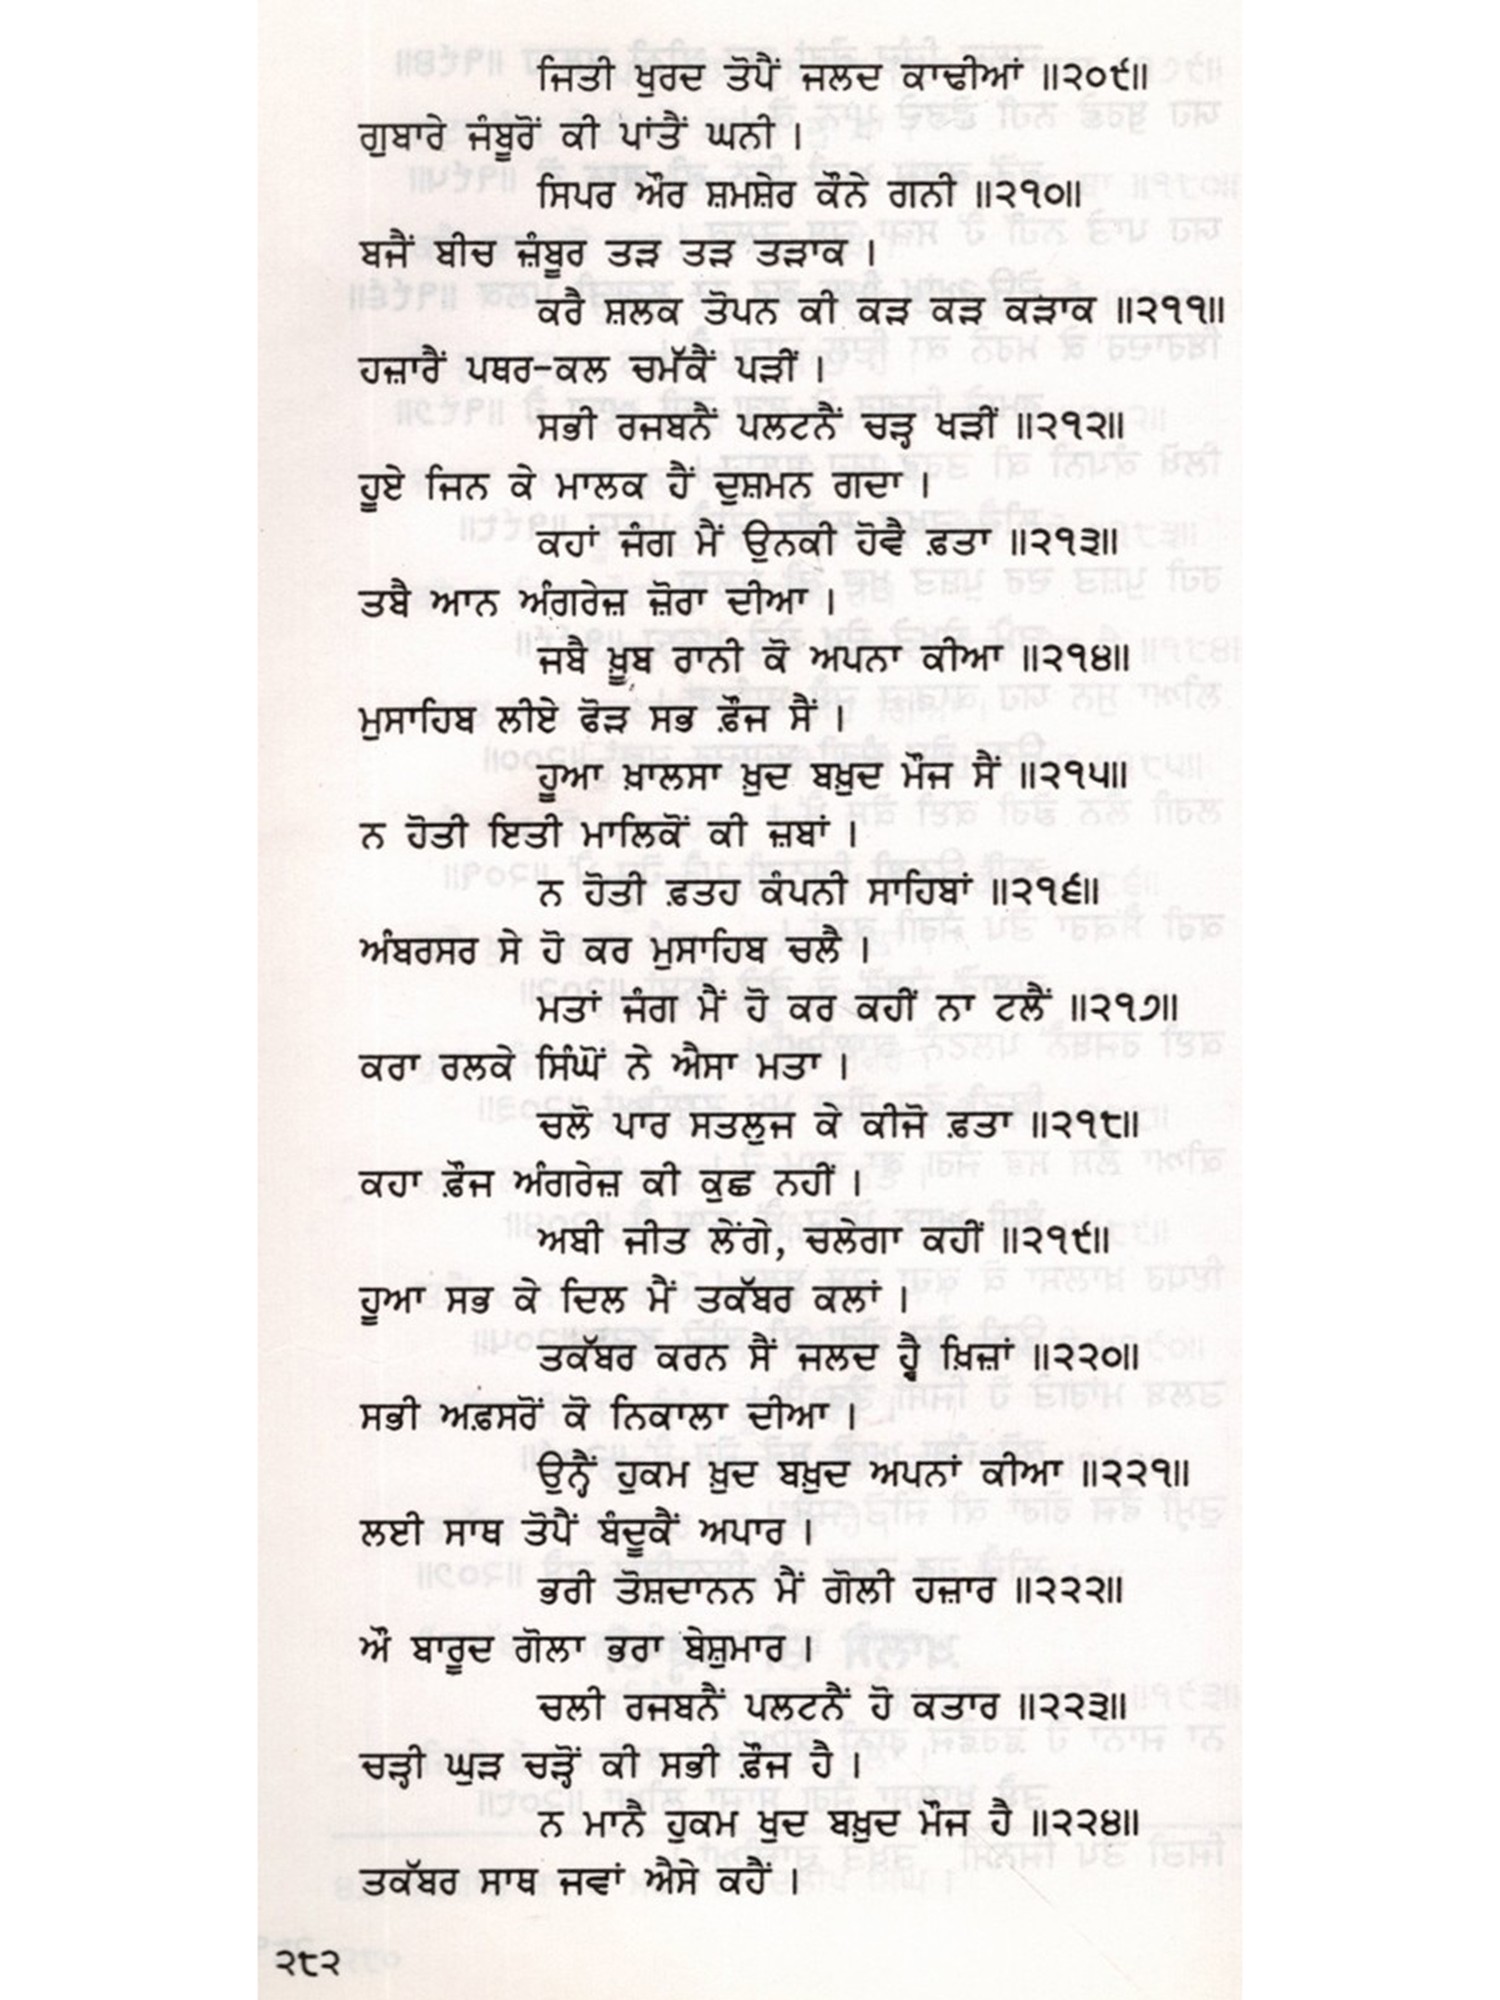 ਜਿਤੀ ਖੁਰਦ ਤੋਪੈਂ ਜਲਦ ਕਾਢੀਆਂ ॥੨੦੯॥
ਗੁਬਾਰੇ ਜੰਬੂਰੋਂ ਕੀ ਪਾਂਤੈਂ ਘਨੀ ।
ਸਿਪਰ ਔਰ ਸ਼ਮਸ਼ੇਰ ਕੌਨੇ ਗਨੀ ॥੨੧੦॥
ਬਜੈਂ ਬੀਚ ਜ਼ੰਬੂਰ ਤੜ ਤੜ ਤੜਾਕ ।
ਕਰੈ ਸ਼ਲਕ ਤੋਪਨ ਕੀ ਕੜ ਕੜ ਕੜਾਕ ॥੨੧੧॥
ਹਜ਼ਾਰੈਂ ਪਥਰ-ਕਲ ਚਮੱਕੈਂ ਪੜੀਂ ।
ਸਭੀ ਰਜਬਨੈਂ ਪਲਟਨੈਂ ਚੜ੍ਹ ਖੜੀਂ ॥੨੧੨॥
ਹੂਏ ਜਿਨ ਕੇ ਮਾਲਕ ਹੈਂ ਦੁਸ਼ਮਨ ਗਦਾ ।
ਕਹਾਂ ਜੰਗ ਮੈਂ ਉਨਕੀ ਹੋਵੈ ਫ਼ਤਾ ॥੨੧੩॥
ਤਬੈ ਆਨ ਅੰਗਰੇਜ਼ ਜ਼ੋਰਾ ਦੀਆ ।
ਜਬੈ ਖ਼ੂਬ ਰਾਨੀ ਕੋ ਅਪਨਾ ਕੀਆ ॥੨੧੪॥
ਮੁਸਾਹਿਬ ਲੀਏ ਫੋੜ ਸਭ ਫ਼ੌਜ ਸੈਂ ।
ਹੂਆ ਖ਼ਾਲਸਾ ਖ਼ੁਦ ਬਖ਼ੁਦ ਮੌਜ ਸੈਂ ॥੨੧੫॥
ਨ ਹੋਤੀ ਇਤੀ ਮਾਲਿਕੋਂ ਕੀ ਜ਼ਬਾਂ ।
ਨ ਹੋਤੀ ਫ਼ਤਹ ਕੰਪਨੀ ਸਾਹਿਬਾਂ ॥੨੧੬॥
ਅੰਬਰਸਰ ਸੇ ਹੋ ਕਰ ਮੁਸਾਹਿਬ ਚਲੈ ।
ਮਤਾਂ ਜੰਗ ਮੈਂ ਹੋ ਕਰ ਕਹੀਂ ਨਾ ਟਲੈਂ ॥੨੧੭॥
ਕਰਾ ਰਲਕੇ ਸਿੰਘੋਂ ਨੇ ਐਸਾ ਮਤਾ ।
ਚਲੋ ਪਾਰ ਸਤਲੁਜ ਕੇ ਕੀਜੋ ਫ਼ਤਾ ॥੨੧੮॥
ਕਹਾ ਫ਼ੌਜ ਅੰਗਰੇਜ਼ ਕੀ ਕੁਛ ਨਹੀਂ ।
ਅਬੀ ਜੀਤ ਲੇਂਗੇ, ਚਲੇਗਾ ਕਹੀਂ ॥੨੧੯॥
ਹੂਆ ਸਭ ਕੇ ਦਿਲ ਮੈਂ ਤਕੱਬਰ ਕਲਾਂ ।
ਤਕੱਬਰ ਕਰਨ ਸੈਂ ਜਲਦ ਹ੍ਵੈ ਖ਼ਿਜ਼ਾਂ ॥੨੨੦॥
ਸਭੀ ਅਫ਼ਸਰੋਂ ਕੋ ਨਿਕਾਲਾ ਦੀਆ ।
ਉਨ੍ਹੈਂ ਹੁਕਮ ਖ਼ੁਦ ਬਖ਼ੁਦ ਅਪਨਾਂ ਕੀਆ ॥੨੨੧॥
ਲਈ ਸਾਥ ਤੋਪੈਂ ਬੰਦੂਕੈਂ ਅਪਾਰ ।
ਭਰੀ ਤੋਸ਼ਦਾਨਨ ਮੈਂ ਗੋਲੀ ਹਜ਼ਾਰ ॥੨੨੨॥
ਔ ਬਾਰੂਦ ਗੋਲਾ ਭਰਾ ਬੇਸ਼ੁਮਾਰ ।
ਚਲੀ ਰਜਬਨੈਂ ਪਲਟਨੈਂ ਹੋ ਕਤਾਰ ॥੨੨੩॥
ਚੜ੍ਹੀ ਘੁੜ ਚੜ੍ਹੋਂ ਕੀ ਸਭੀ ਫ਼ੌਜ ਹੈ ।
ਨ ਮਾਨੈ ਹੁਕਮ ਖੁਦ ਬਖ਼ੁਦ ਮੌਜ ਹੈ ॥੨੨੪॥
ਤਕੱਬਰ ਸਾਥ ਜਵਾਂ ਐਸੇ ਕਹੈਂ ।
੨੮੨